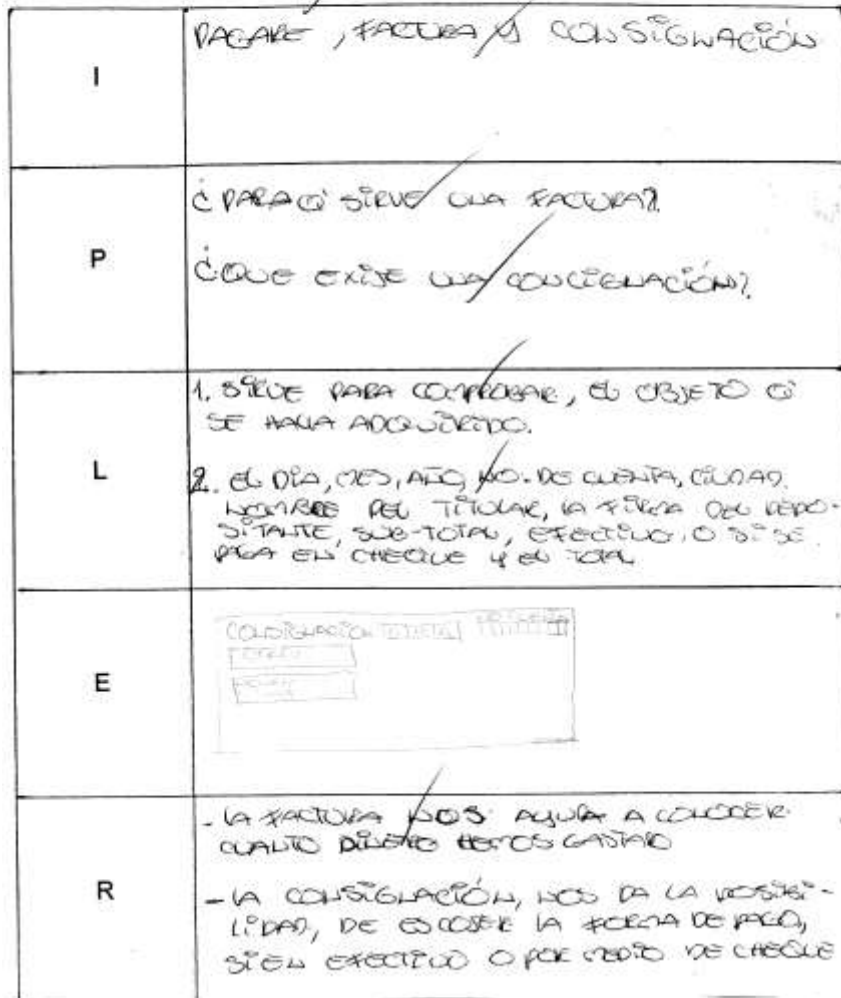 I
PAGARE, FACTURA Y CONSIGNACIÓN
P
¿PARA Q' SIRVE UNA FACTURA?
¿QUE EXIJE UNA CONCIGNACIÓN?
L
1. SIRVE PARA COMPROBAR, EL OBJETO Q'
SE HAYA ADQUIRIDO.
2. EL DÍA, MES, AÑO, NO. DE CUENTA, CIUDAD.
NOMBRE DEL TÍTULAR, LA FIRMA DEL DEPO-
SITANTE, SUB-TOTAL, EFECTIVO, O SI SE
PAGA EN CHEQUE Y EL TOTAL
E
CONSIGNACIÓN
R
- LA FACTURA NOS AYUDA A CONOCER
CUANTO DINERO HEMOS GASTADO
- LA CONSIGNACIÓN, NOS DA LA POSIBI-
LIDAD, DE ESCOJER LA FORMA DE PAGO,
SI EN EFECTIVO O POR MEDIO DE CHEQUE